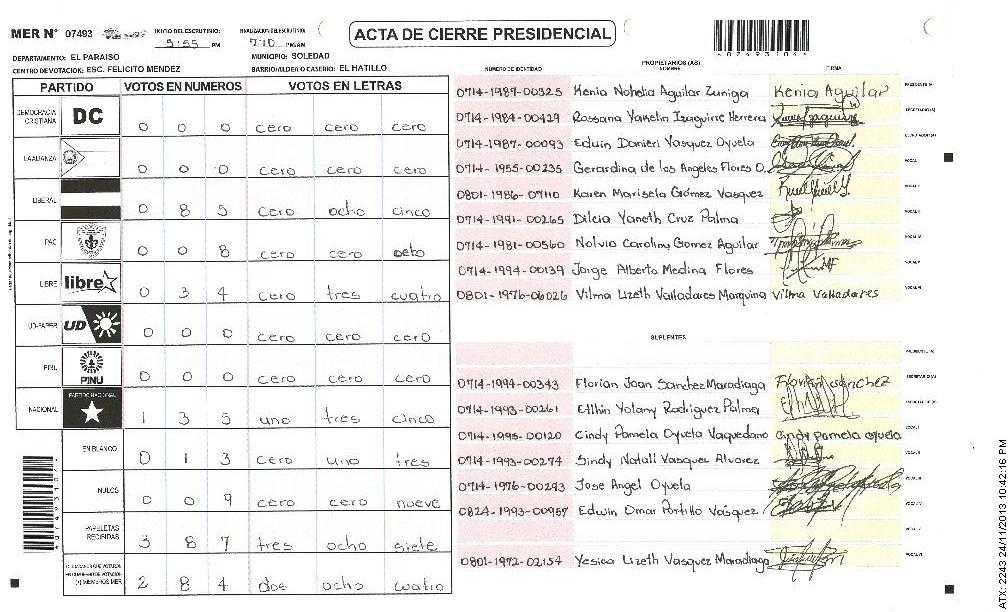 MER N° 07493
INICIO DEL ESCRUTINIO: 5:55 PM
FINALIZACION DEL ESCRUTINIO: 7:10 PM/AM
ACTA DE CIERRE PRESIDENCIAL
DEPARTAMENTO: EL PARAISO
MUNICIPIO: SOLEDAD
CENTRO DE VOTACION: ESC. FELICITO MENDEZ
BARRIO/ALDEA O CASERIO: EL HATILLO
PARTIDO VOTOS EN NUMEROS VOTOS EN LETRAS
DEMOCRACIA CRISTIANA DC 0 0 0 cero cero cero
LA ALIANZA 0 0 0 cero cero cero
LIBERAL 0 8 5 cero ocho cinco
PAC 0 0 8 cero cero ocho
LIBRE libre 0 3 4 cero tres cuatro
UD-FAPER UD 0 0 0 cero cero cero
PINU PINU 0 0 0 cero cero cero
NACIONAL PARTIDO NACIONAL 1 3 5 uno tres cinco
EN BLANCO 0 1 3 cero uno tres
NULOS 0 0 9 cero cero nueve
PAPELETAS RECIBIDAS 3 8 7 tres ocho siete
(*) MIEMBROS MER 2 8 4 dos ocho cuatro
PROPIETARIOS (AS)
NUMERO DE IDENTIDAD NOMBRE FIRMA
0714-1987-00325 Kenia Nohelia Aguilar Zuniga Kenia Aguilar
0714-1984-00429 Rossana Yamelin Izaguirre Herrera
0714-1987-00093 Eduin Danieri Vasquez Oyuela
0714-1955-00235 Gerardina de los Angeles Flores O.
0801-1986-07110 Karen Marisela Gómez Vasquez
0714-1991-00265 Dilcia Yaneth Cruz Palma
0714-1981-00560 Nolvia Carolina Gomez Aguilar
0714-1994-00139 Jorge Alberto Medina Flores
0801-1976-06026 Vilma Lizeth Valladares Marquina Vilma Valladares
SUPLENTES
0714-1994-00343 Florian Joan Sanchez Maradiaga Florian Sánchez
0714-1993-00261 Etthin Yolany Rodriguez Palma
0714-1995-00120 Cindy Pamela Oyuela Vaquedano Cindy Pamela Oyuela
0714-1993-00274 Sindy Natali Vasquez Alvarez
0714-1976-00293 Jose Angel Oyuela
0824-1993-00957 Edwin Omar Portillo Vasquez
0801-1972-02154 Yesica Lizeth Vasquez Maradiaga
ATX: 2243 24/11/2013 10:42:16 PM